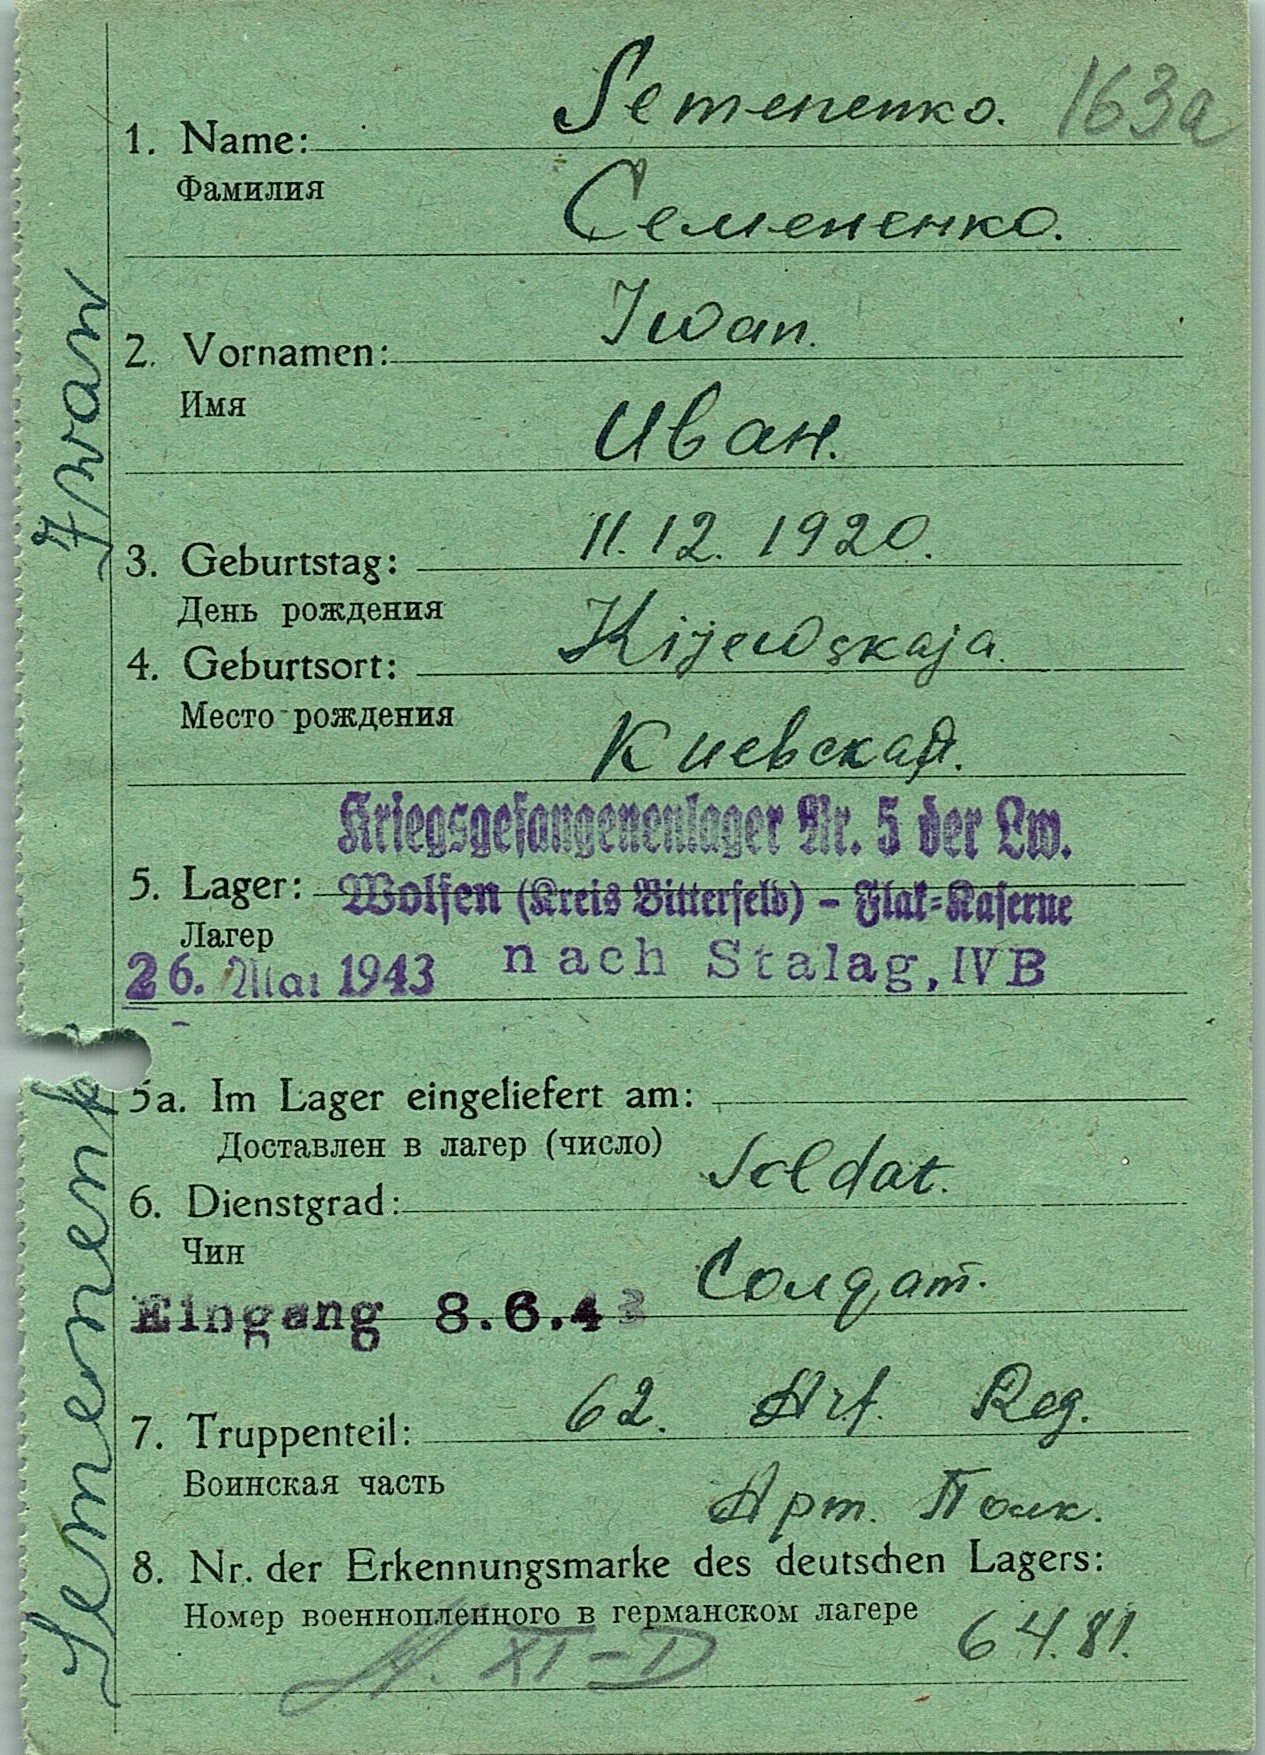 163a
Semenenko.
1. Name:
Фамилия
Семененко.
Iwan.
2. Vornamen:
Имя
Иван.
11.12.1920.
3. Geburtstag:
День рождения
Kijewskaja.
4. Geburtsort:
Место рождения
Киевская.
Kriegsgefangenenlager Nr. 5 der Lw.
5. Lager: Wolfen (Kreis Bitterfeld) - Flak=Kaserne
Лагер
26. Mai 1943 nach Stalag, IV B
5a. Im Lager eingeliefert am:
Доставлен в лагер (число)
Soldat.
6. Dienstgrad:
Чин
Солдат.
Eingang 8.6.43
62. Art. Reg.
7. Truppenteil:
Воинская часть
Арт. Полк.
8. Nr. der Erkennungsmarke des deutschen Lagers:
Номер военнопленного в германском лагере
6481.
XI-D
Semenenk
Iwan